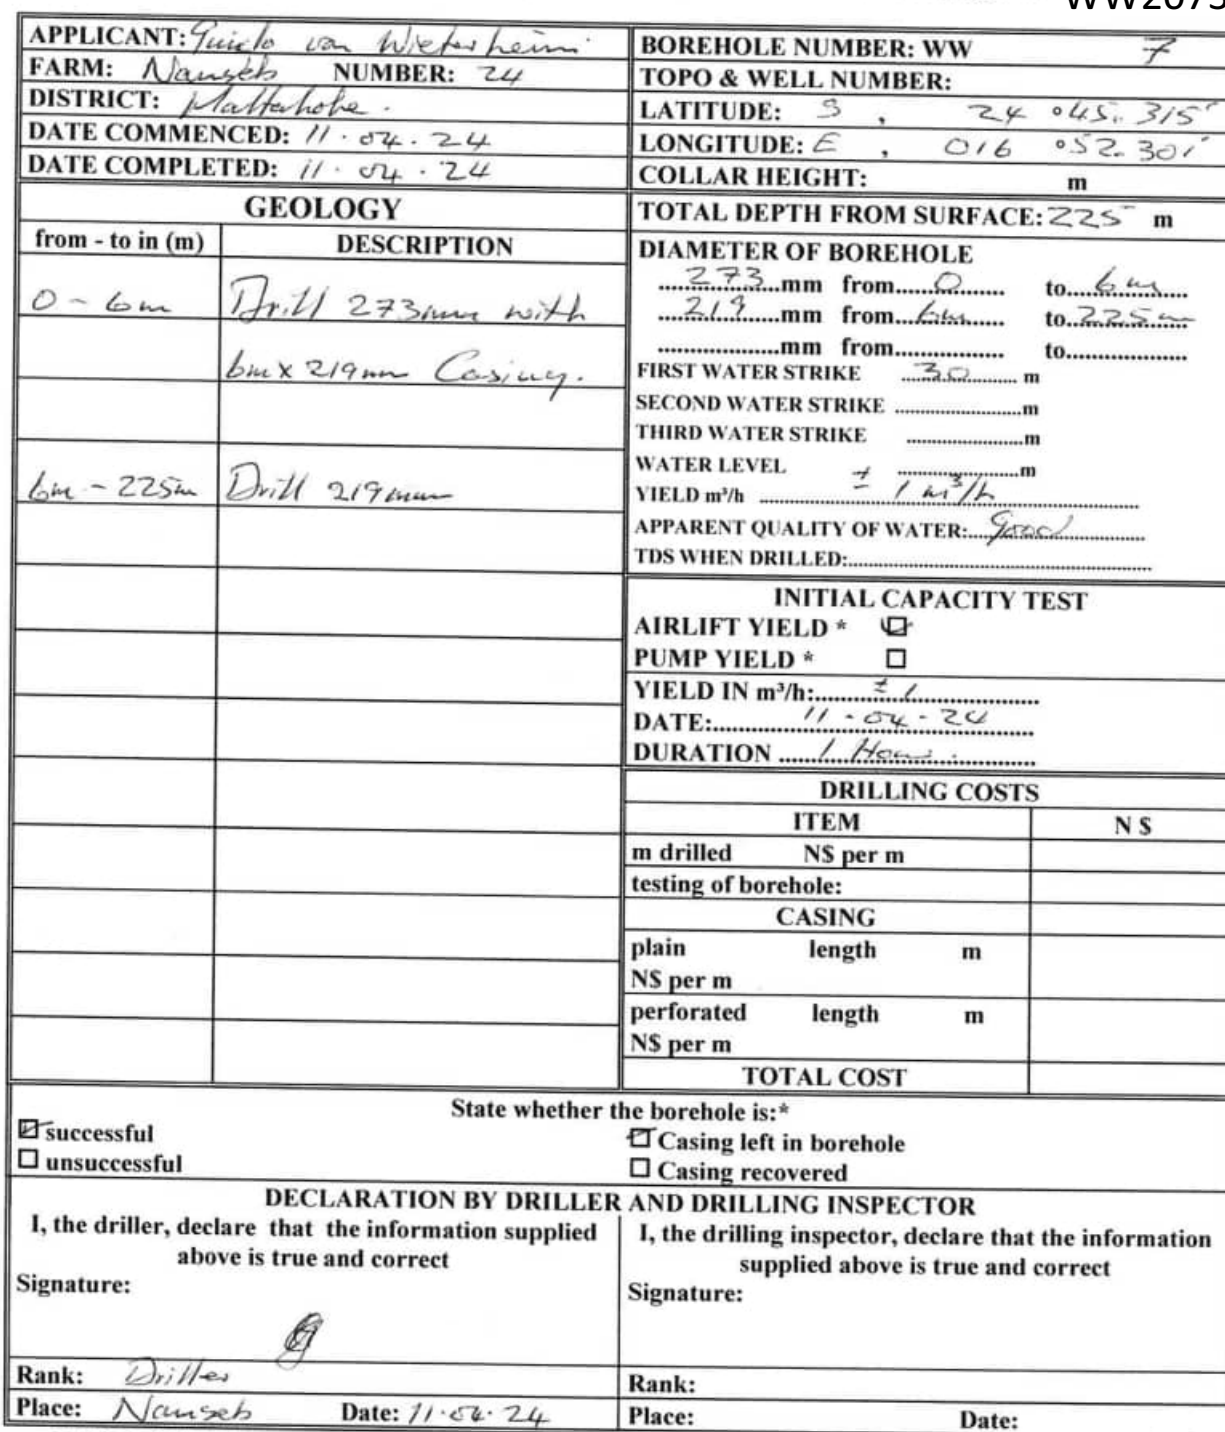 WW2073
APPLICANT: Guido von Wietersheim
FARM: Nauseb NUMBER: 24
DISTRICT: Maltahohe.
DATE COMMENCED: 11.04.24
DATE COMPLETED: 11.04.24
BOREHOLE NUMBER: WW 7
TOPO & WELL NUMBER:
LATITUDE: S , 24 °45.315'
LONGITUDE: E , 016 °52.301'
COLLAR HEIGHT: m
GEOLOGY
from - to in (m) DESCRIPTION
0 - 6m Drill 273mm with
6m x 219mm Casing.
6m - 225m Drill 219mm
TOTAL DEPTH FROM SURFACE: 225 m
DIAMETER OF BOREHOLE
273 mm from 0 to 6m
219 mm from 6m to 225m
mm from to
FIRST WATER STRIKE 30 m
SECOND WATER STRIKE m
THIRD WATER STRIKE m
WATER LEVEL m
YIELD m³/h ± 1 m³/h
APPARENT QUALITY OF WATER: Good
TDS WHEN DRILLED:
INITIAL CAPACITY TEST
AIRLIFT YIELD *
PUMP YIELD *
YIELD IN m³/h: ± 1
DATE: 11-04-24
DURATION 1 Hour.
DRILLING COSTS
ITEM N $
m drilled N$ per m
testing of borehole:
CASING
plain length m
N$ per m
perforated length m
N$ per m
TOTAL COST
State whether the borehole is:*
successful
unsuccessful
Casing left in borehole
Casing recovered
DECLARATION BY DRILLER AND DRILLING INSPECTOR
I, the driller, declare that the information supplied
above is true and correct
Signature:
Rank: Driller
Place: Nauseb Date: 11.04.24
I, the drilling inspector, declare that the information
supplied above is true and correct
Signature:
Rank:
Place: Date: